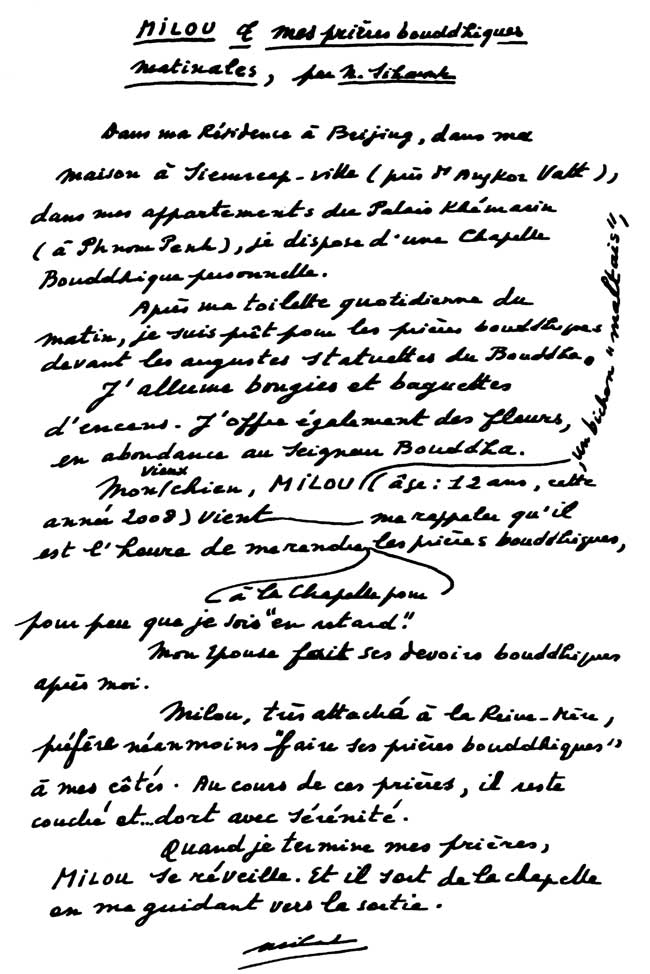 MILOU & mes prières bouddhiques
matinales, par N. Sihanouk
Dans ma Résidence à Beijing, dans ma
maison à Siemreap-ville (près d'Angkor Vatt),
dans mes appartements du Palais Khémarin
(à Phnom Penh), je dispose d'une Chapelle
Bouddhique personnelle.
Après ma toilette quotidienne du
matin, je suis prêt pour les prières bouddhiques
devant les augustes statuettes du Bouddha.
J'allume bougies et baguettes
d'encens. J'offre également des fleurs,
en abondance au Seigneur Bouddha.
Mon vieux chien, MILOU, un bichon "maltais", (âge : 12 ans, cette
année 2008) vient me rappeler qu'il
est l'heure de me rendre à la Chapelle pour les prières bouddhiques,
pour peu que je sois "en retard".
Mon Epouse fait ses devoirs bouddhiques
après moi.
Milou, très attaché à la Reine-Mère,
préfère néanmoins "faire ses prières bouddhiques"
à mes côtés. Au cours de ces prières, il reste
couché et...dort avec sérénité.
Quand je termine mes prières,
MILOU se réveille. Et il sort de la chapelle
en me guidant vers la sortie.